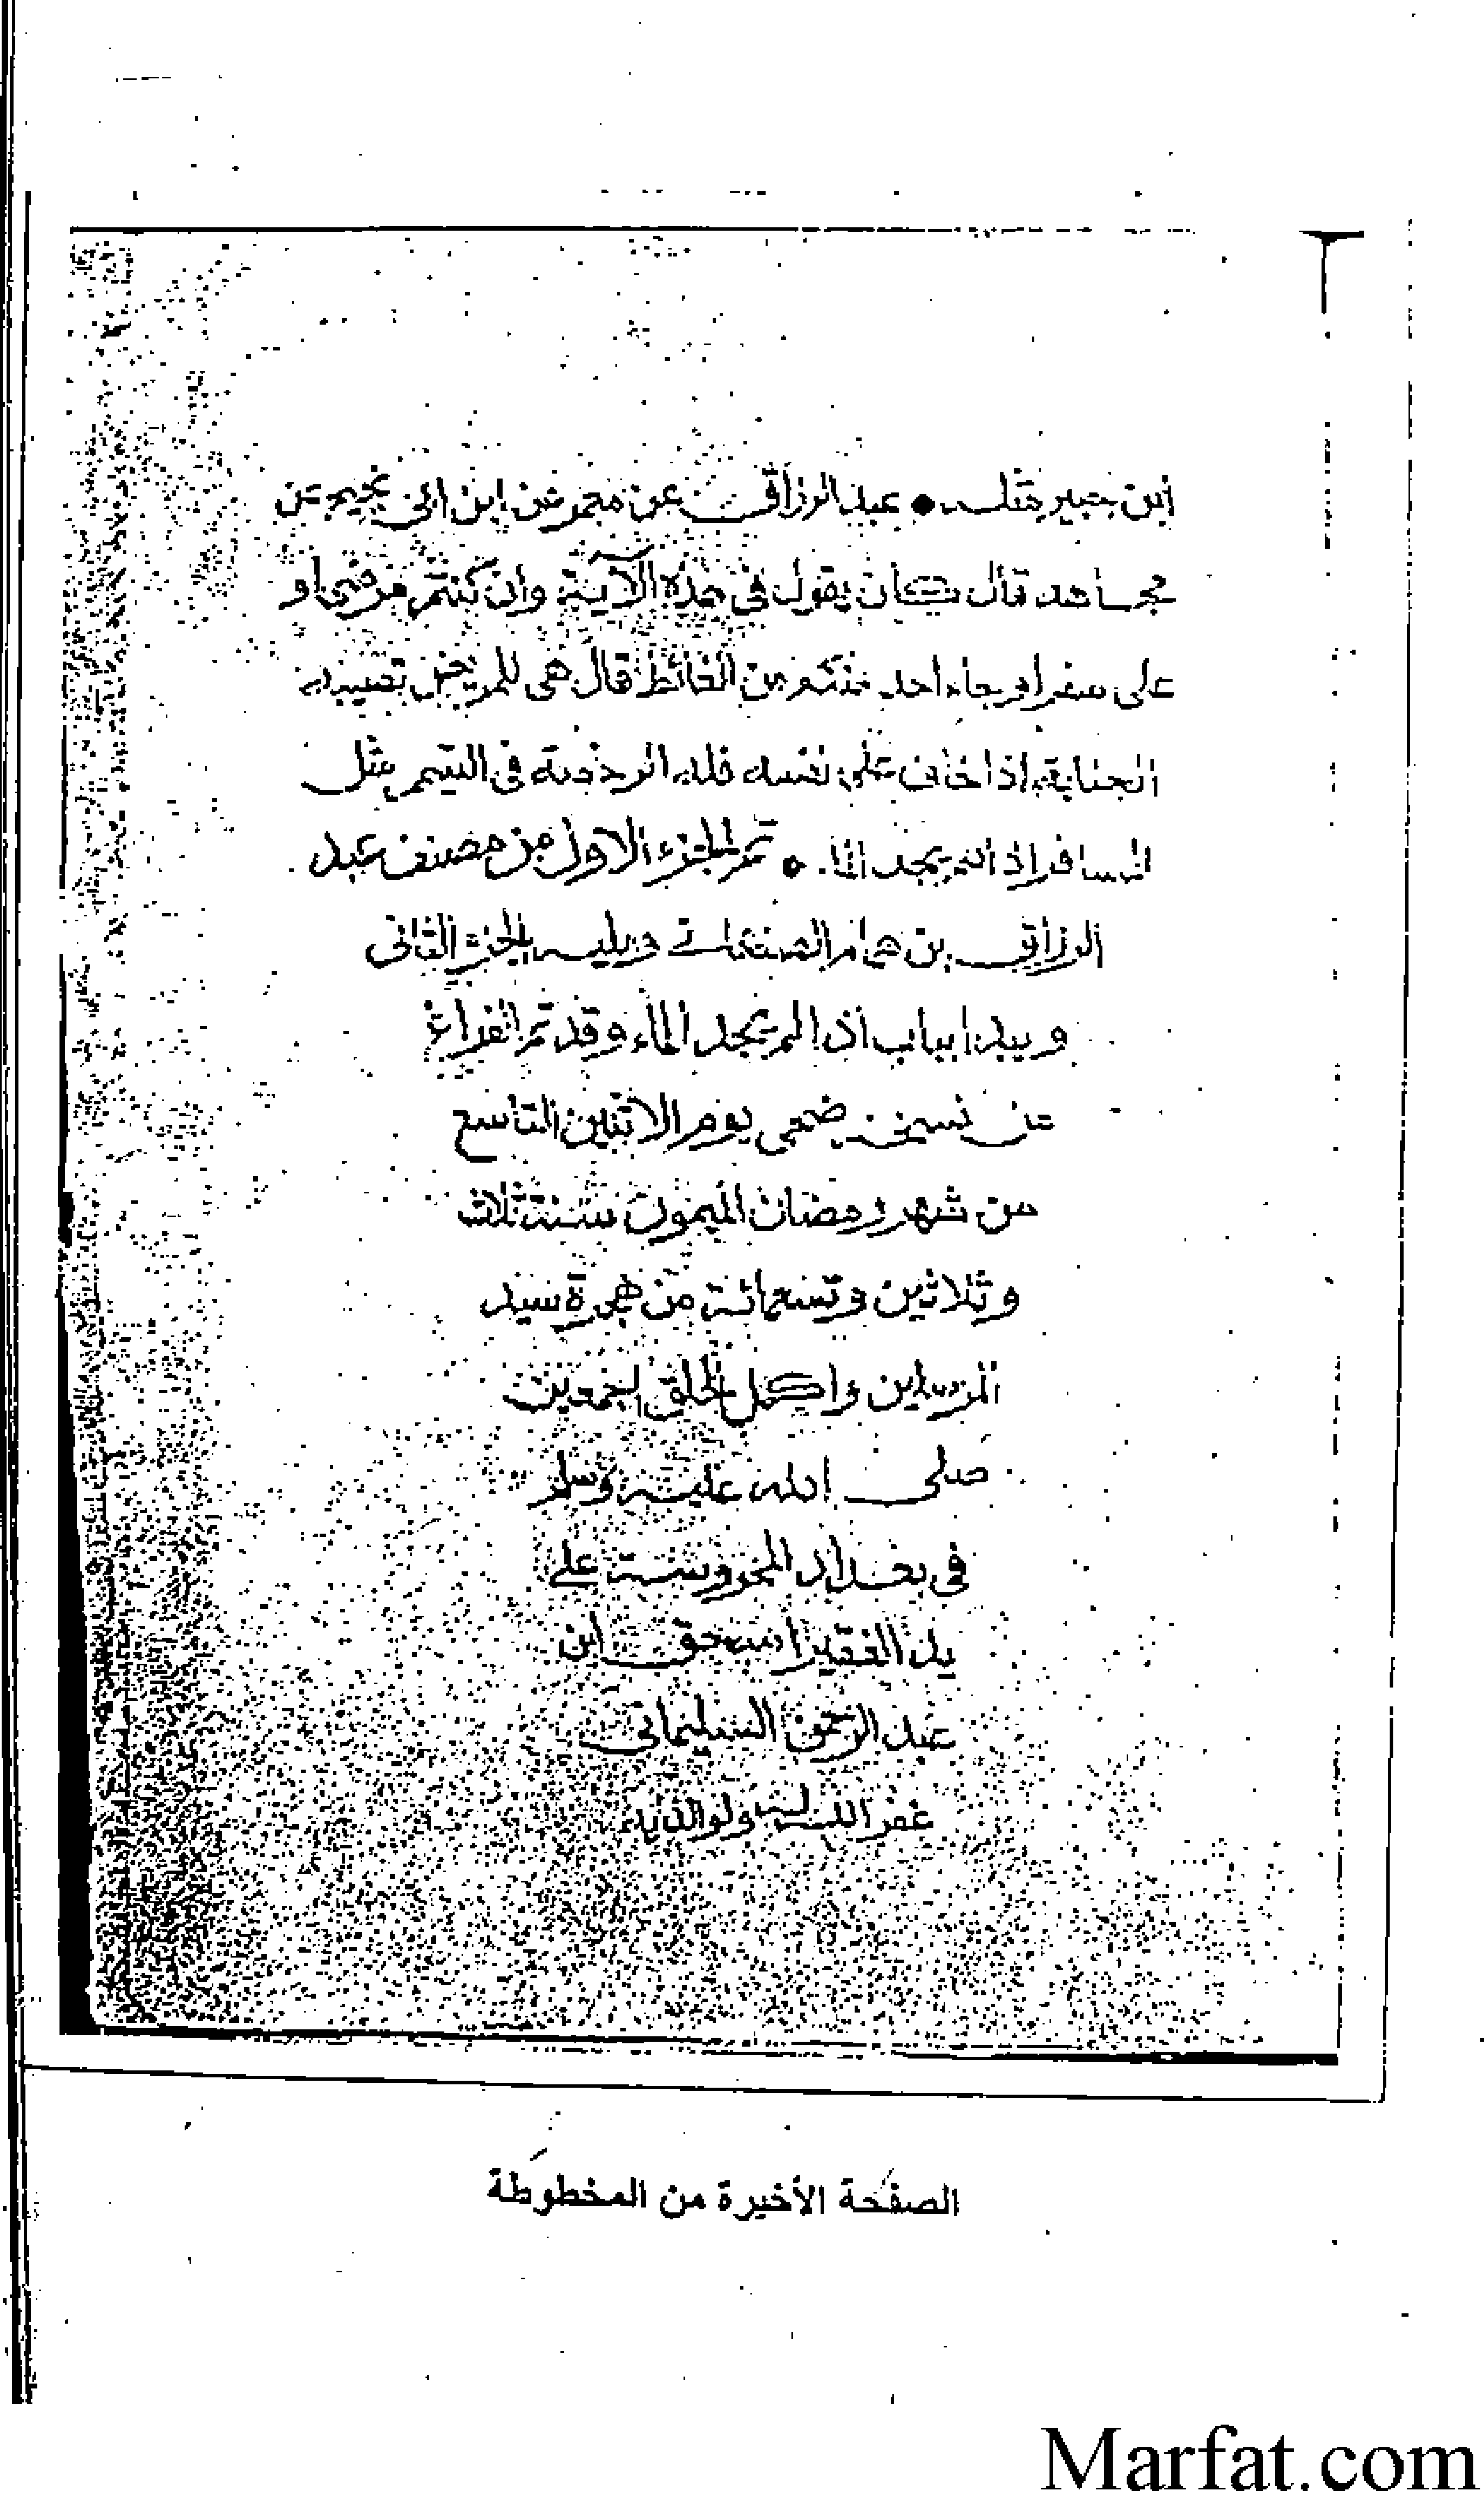 ابن جبير مثله • عبد الرزاق عن معمر عن ابن ابى نجيح عن
مجاهد قال كان يقول فى هذه الآية وان كنتم مرضى او
على سفر او جاء احد منكم من الغائط قال هى للمريض تصيبه
الجنابة اذا خاف على نفسه فله الرخصة فى التيمم مثل
المسافر اذا لم يجد الما • تم الجزء الاول من مصنف عبد
الرزاق بن همام الصنعانى ويليه الجزء الثانى
ويبدا بباب اذا لم يجد الماء وقد تم الفراغ
من نسخه ضحى يوم الاثنين التاسع
من شهر رمضان الميمون سنة ثلاث
وثلاثين وتسعمائة من هجرة سيد
المرسلين واكمل الخلق اجمعين
صلى الله عليه وسلم
فى بغداد المحروسة على
يد الفقير اسحق ابن
عبد الرحمن السليمانى
غفر الله له ولوالديه
الصفحة الأخيرة من المخطوطة
Marfat.com